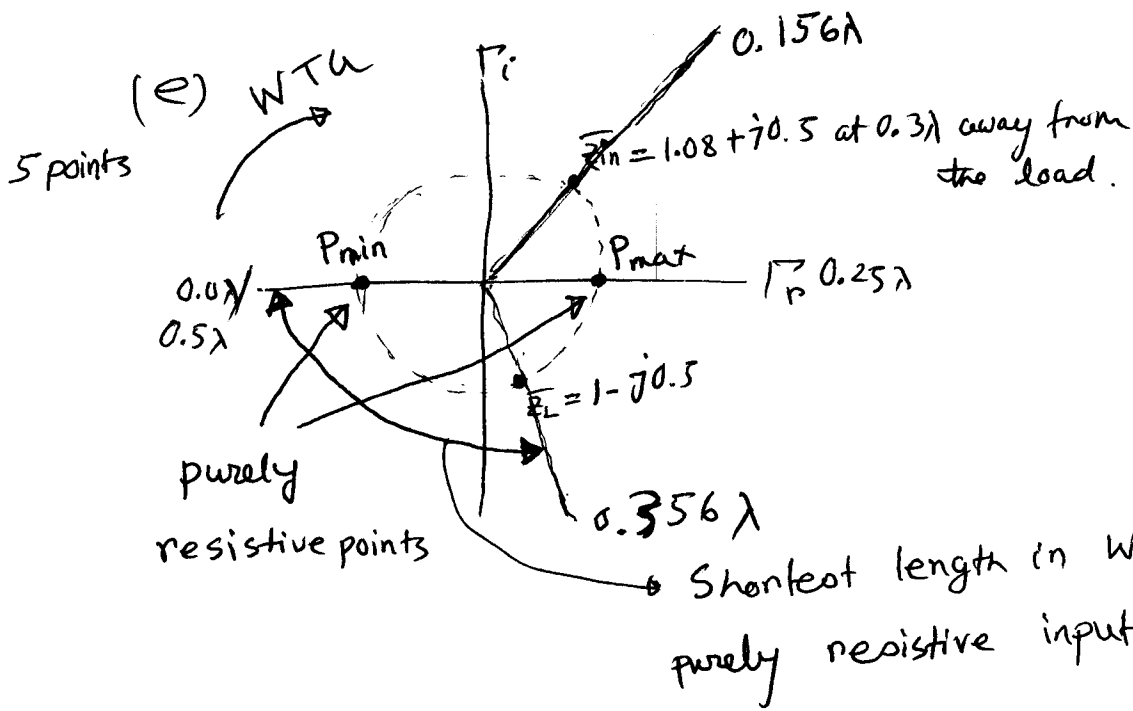 (e) WTG
5 points
Γi
0.156λ
Z̅in = 1.08 + j0.5 at 0.3λ away from
the load.
Pmin
Pmax
0.0λ/
0.5λ
Γr 0.25λ
Z̅L = 1 - j0.5
purely
resistive points
0.356λ
Shortest length in W
purely resistive input